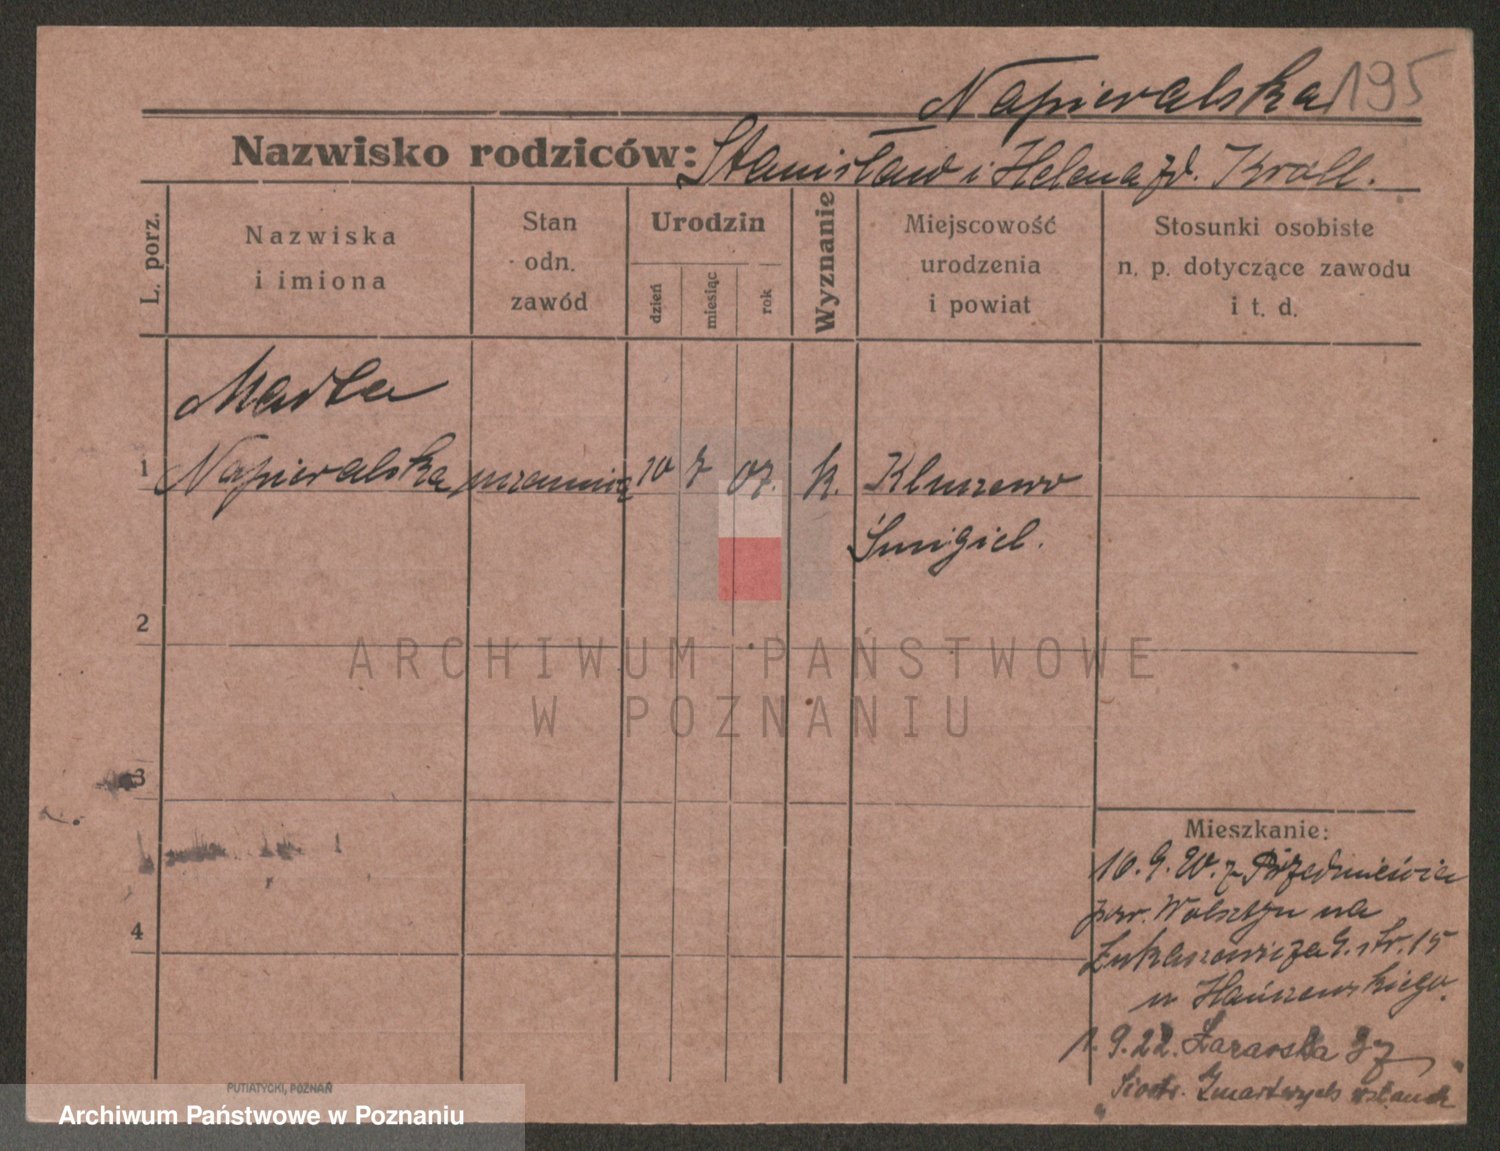 Napieralska 195
Nazwisko rodziców: Stanisław i Helena zd. Kroll.
L. porz.
Nazwiska
i imiona
Stan
odn.
zawód
Urodzin
dzień
miesiąc
rok
Wyznanie
Miejscowość
urodzenia
i powiat
Stosunki osobiste
n. p. dotyczące zawodu
i t. d.
Marta
1 Napieralska 10 7 07. k. Kluszewo
Śmigiel.
2
ARCHIWUM PAŃSTWOWE
W POZNANIU
3
Mieszkanie:
16.9.20. z Przedmieścia
pow. Wolsztyn na
4
Łukaszewicza 9. str. 15
u
1.9.22. Łazarska 3
Siostr. Zmartwych wstanek
PUTIATYCKI, POZNAŃ
Archiwum Państwowe w Poznaniu